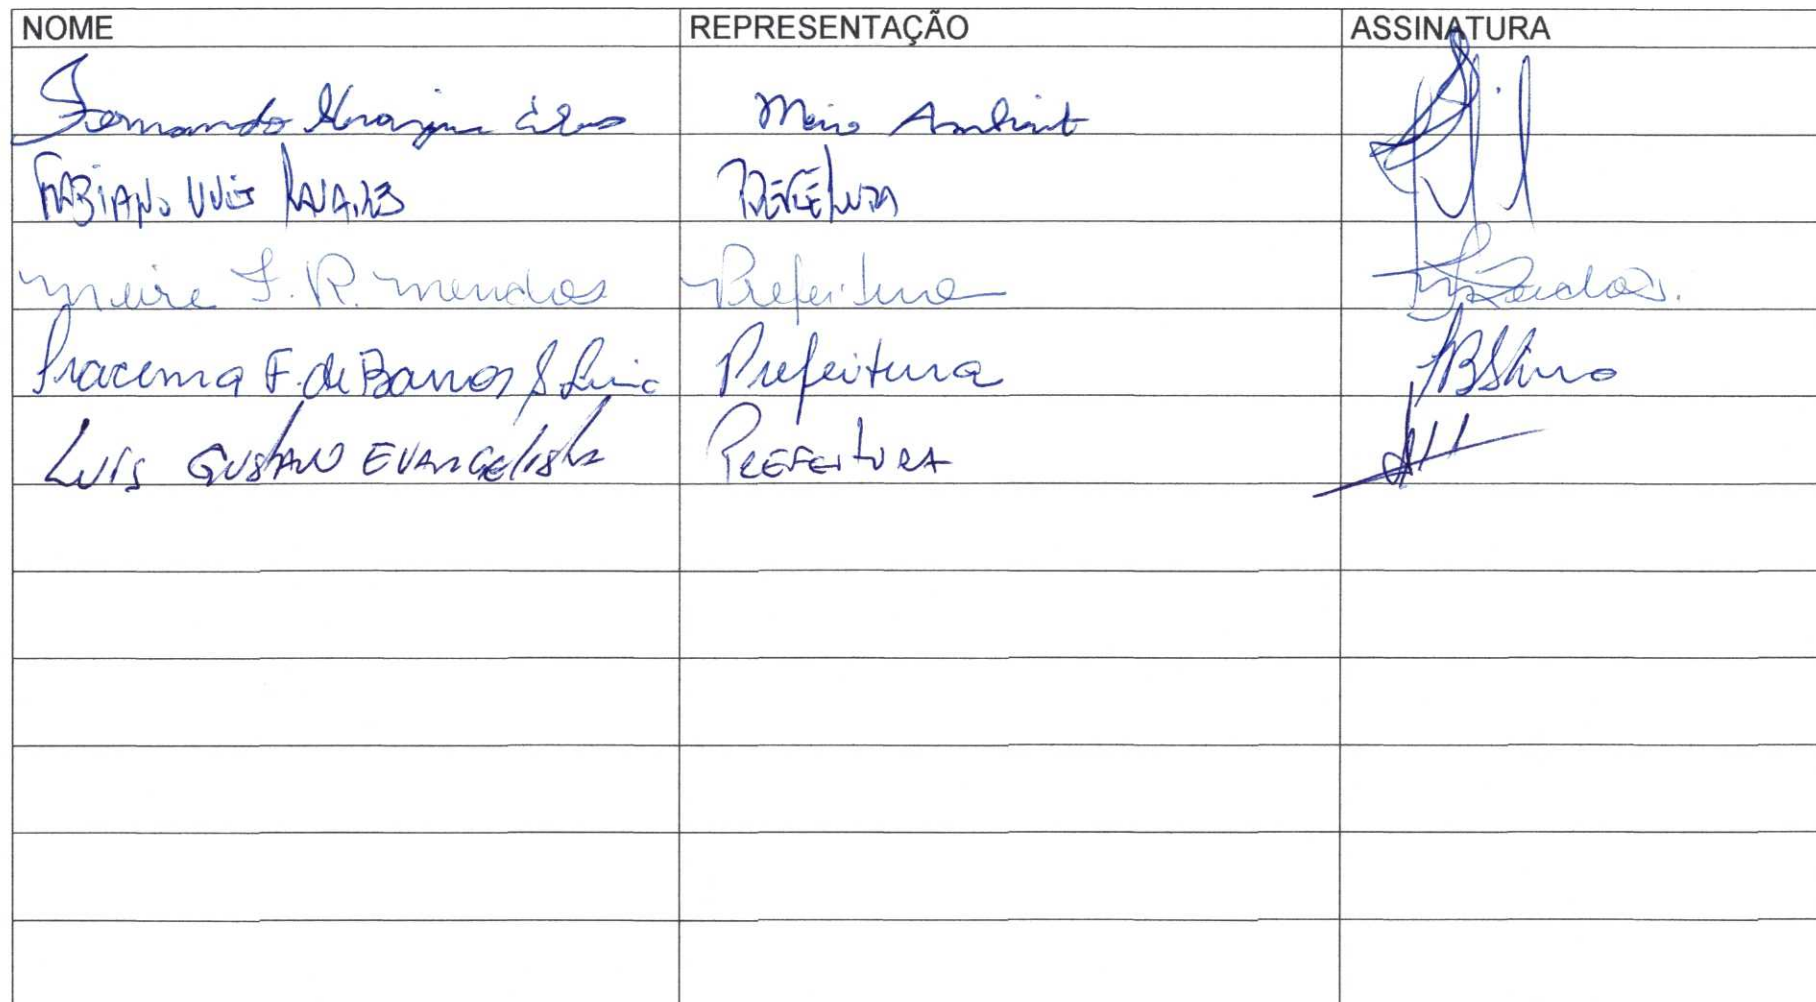 NOME REPRESENTAÇÃO ASSINATURA
Fernando Meio Ambient
FABIANO PREFEITURA
Meire F. R. Mendes Prefeitura
Iracema F. de Barros S. Prefeitura
LUIS GUSTAVO EVANGELISTA PREFEITURA